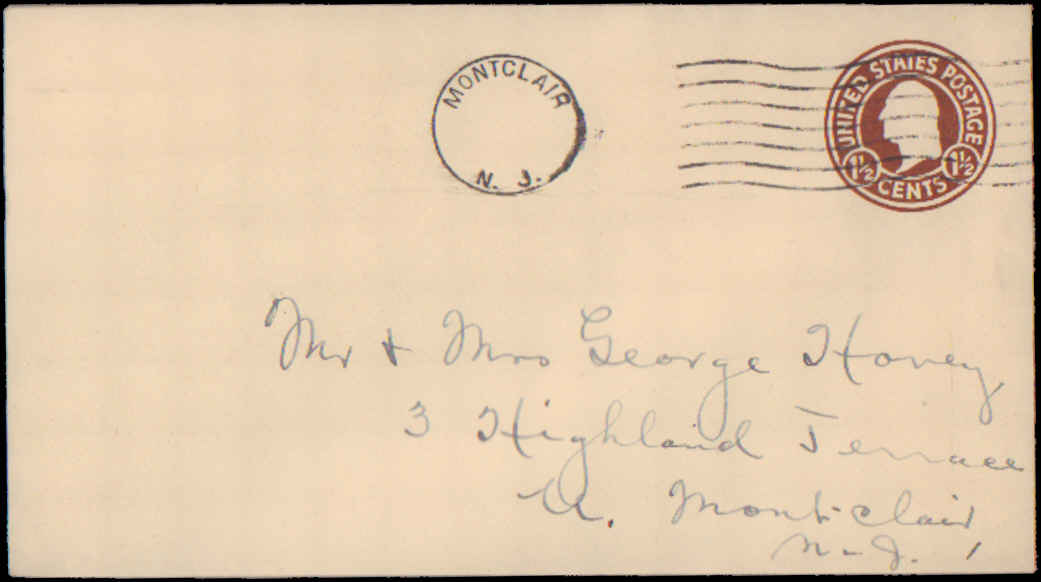 MONTCLAIR
N. J.
UNITED STATES POSTAGE
1½ CENTS 1½
Mr + Mrs George Hovey
3 Highland Terrace
U. Montclair
N-J.